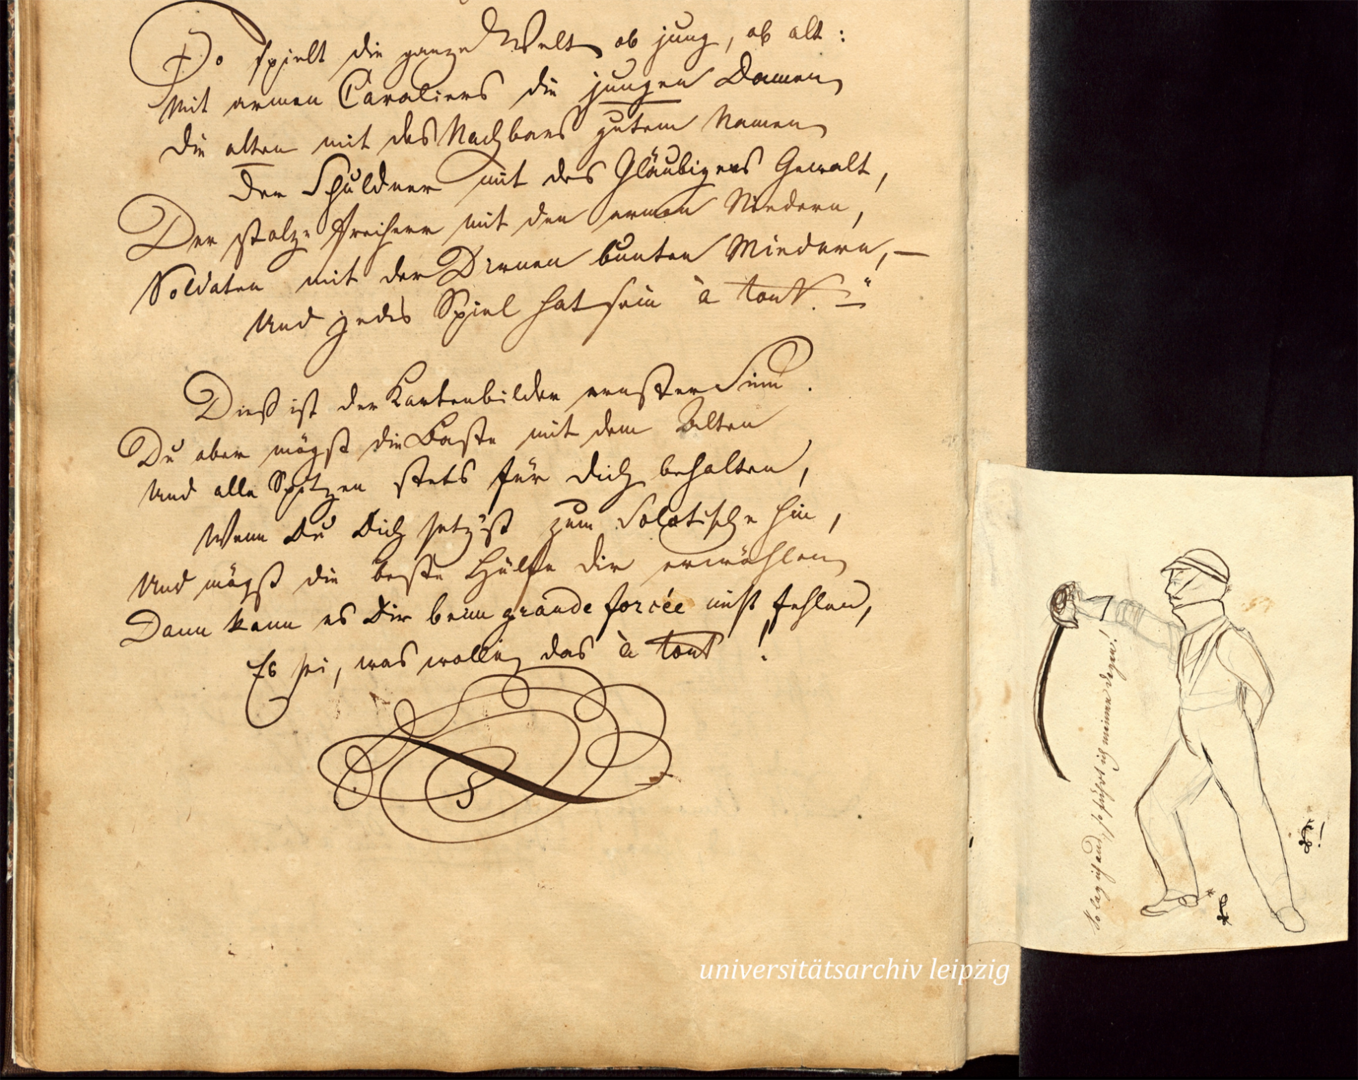 So spielt die ganze Welt, ob jung, ob alt:
Mit armen Cavaliers die jungen Damen,
Die alten mit des Nachbars gutem Namen,
Der Schuldner mit des Gläubigers Gewalt,
Der stolze Freiherr mit den armen Niedern,
Soldaten mit der Dirnen bunten Miedern, –
Und jedes Spiel hat sein à tout. –"
Dieß ist der Kartenbilder ernster Sinn.
Du aber mögst die Baste mit dem Alten
Und alle Spitzen stets für Dich behalten,
Wenn Du Dich setzst zum Solotische hin,
Und mögst die beste Hülfe Dir erwählen,
Dann kann es Dir beim grande forcée nicht fehlen,
Es sei, was wolle, das à tout!
So leg ich aus, so führt ich meinen Degen!
universitätsarchiv leipzig